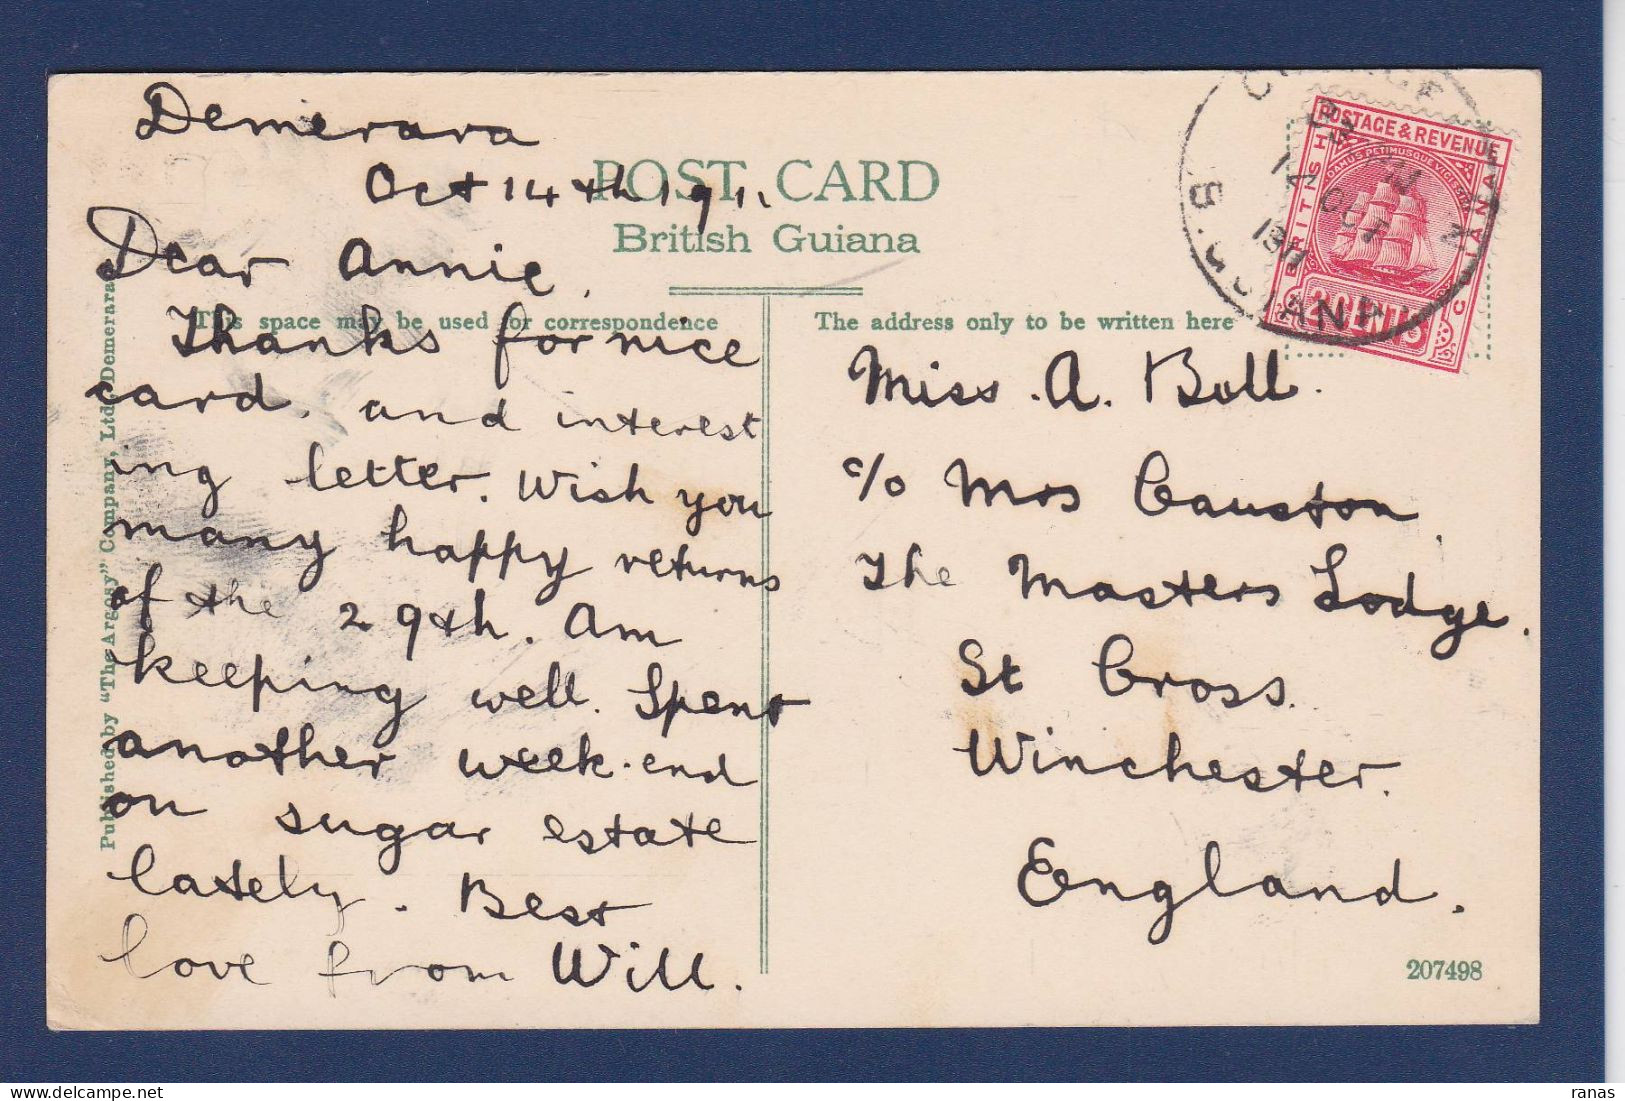 Demerara
Oct 14th 1911.
POST CARD
British Guiana
Dear Annie,
This space may be used for correspondence
Thanks for nice
card. and interest
ing letter. Wish you
many happy returns
of the 29th. Am
keeping well. Spent
another week-end
on sugar estate
lately. Best
love from Will.
Published by "The Argosy" Company, Ltd., Demerara
The address only to be written here
Miss. A. Boll.
c/o Mrs Causton,
The Masters Lodge.
St Cross.
Winchester.
England.
207498
POSTAGE & REVENUE
BRITISH
GUIANA
DAMUS PETIMUSQUE VICISSIM
2 CENTS
B. GUIANA
14 OC
1911
ranas